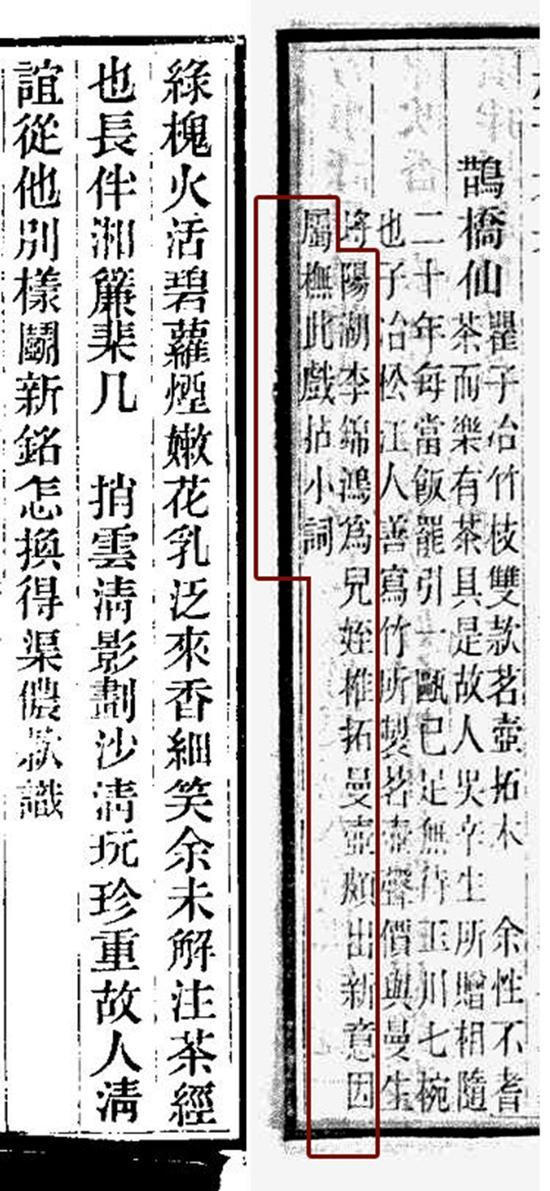 鵲橋仙
瞿子冶竹枝雙款茗壺拓本　余性不耆
茶而樂有茶具是故人吳辛生所贈相隨
二十年每當飯罷引一甌已足無待玉川七椀
也子冶松江人善寫竹所製茗壺聲價與曼生
埒陽湖李錦鴻爲兒姪椎拓曼壺頗出新意因
屬橅此戲拈小詞
綠槐火活碧蘿煙嫩花乳泛來香細笑余未解注茶經
也長伴湘簾棐几　捎雲清影劃沙清玩珍重故人清
誼從他別樣鬭新銘怎換得渠儂款識